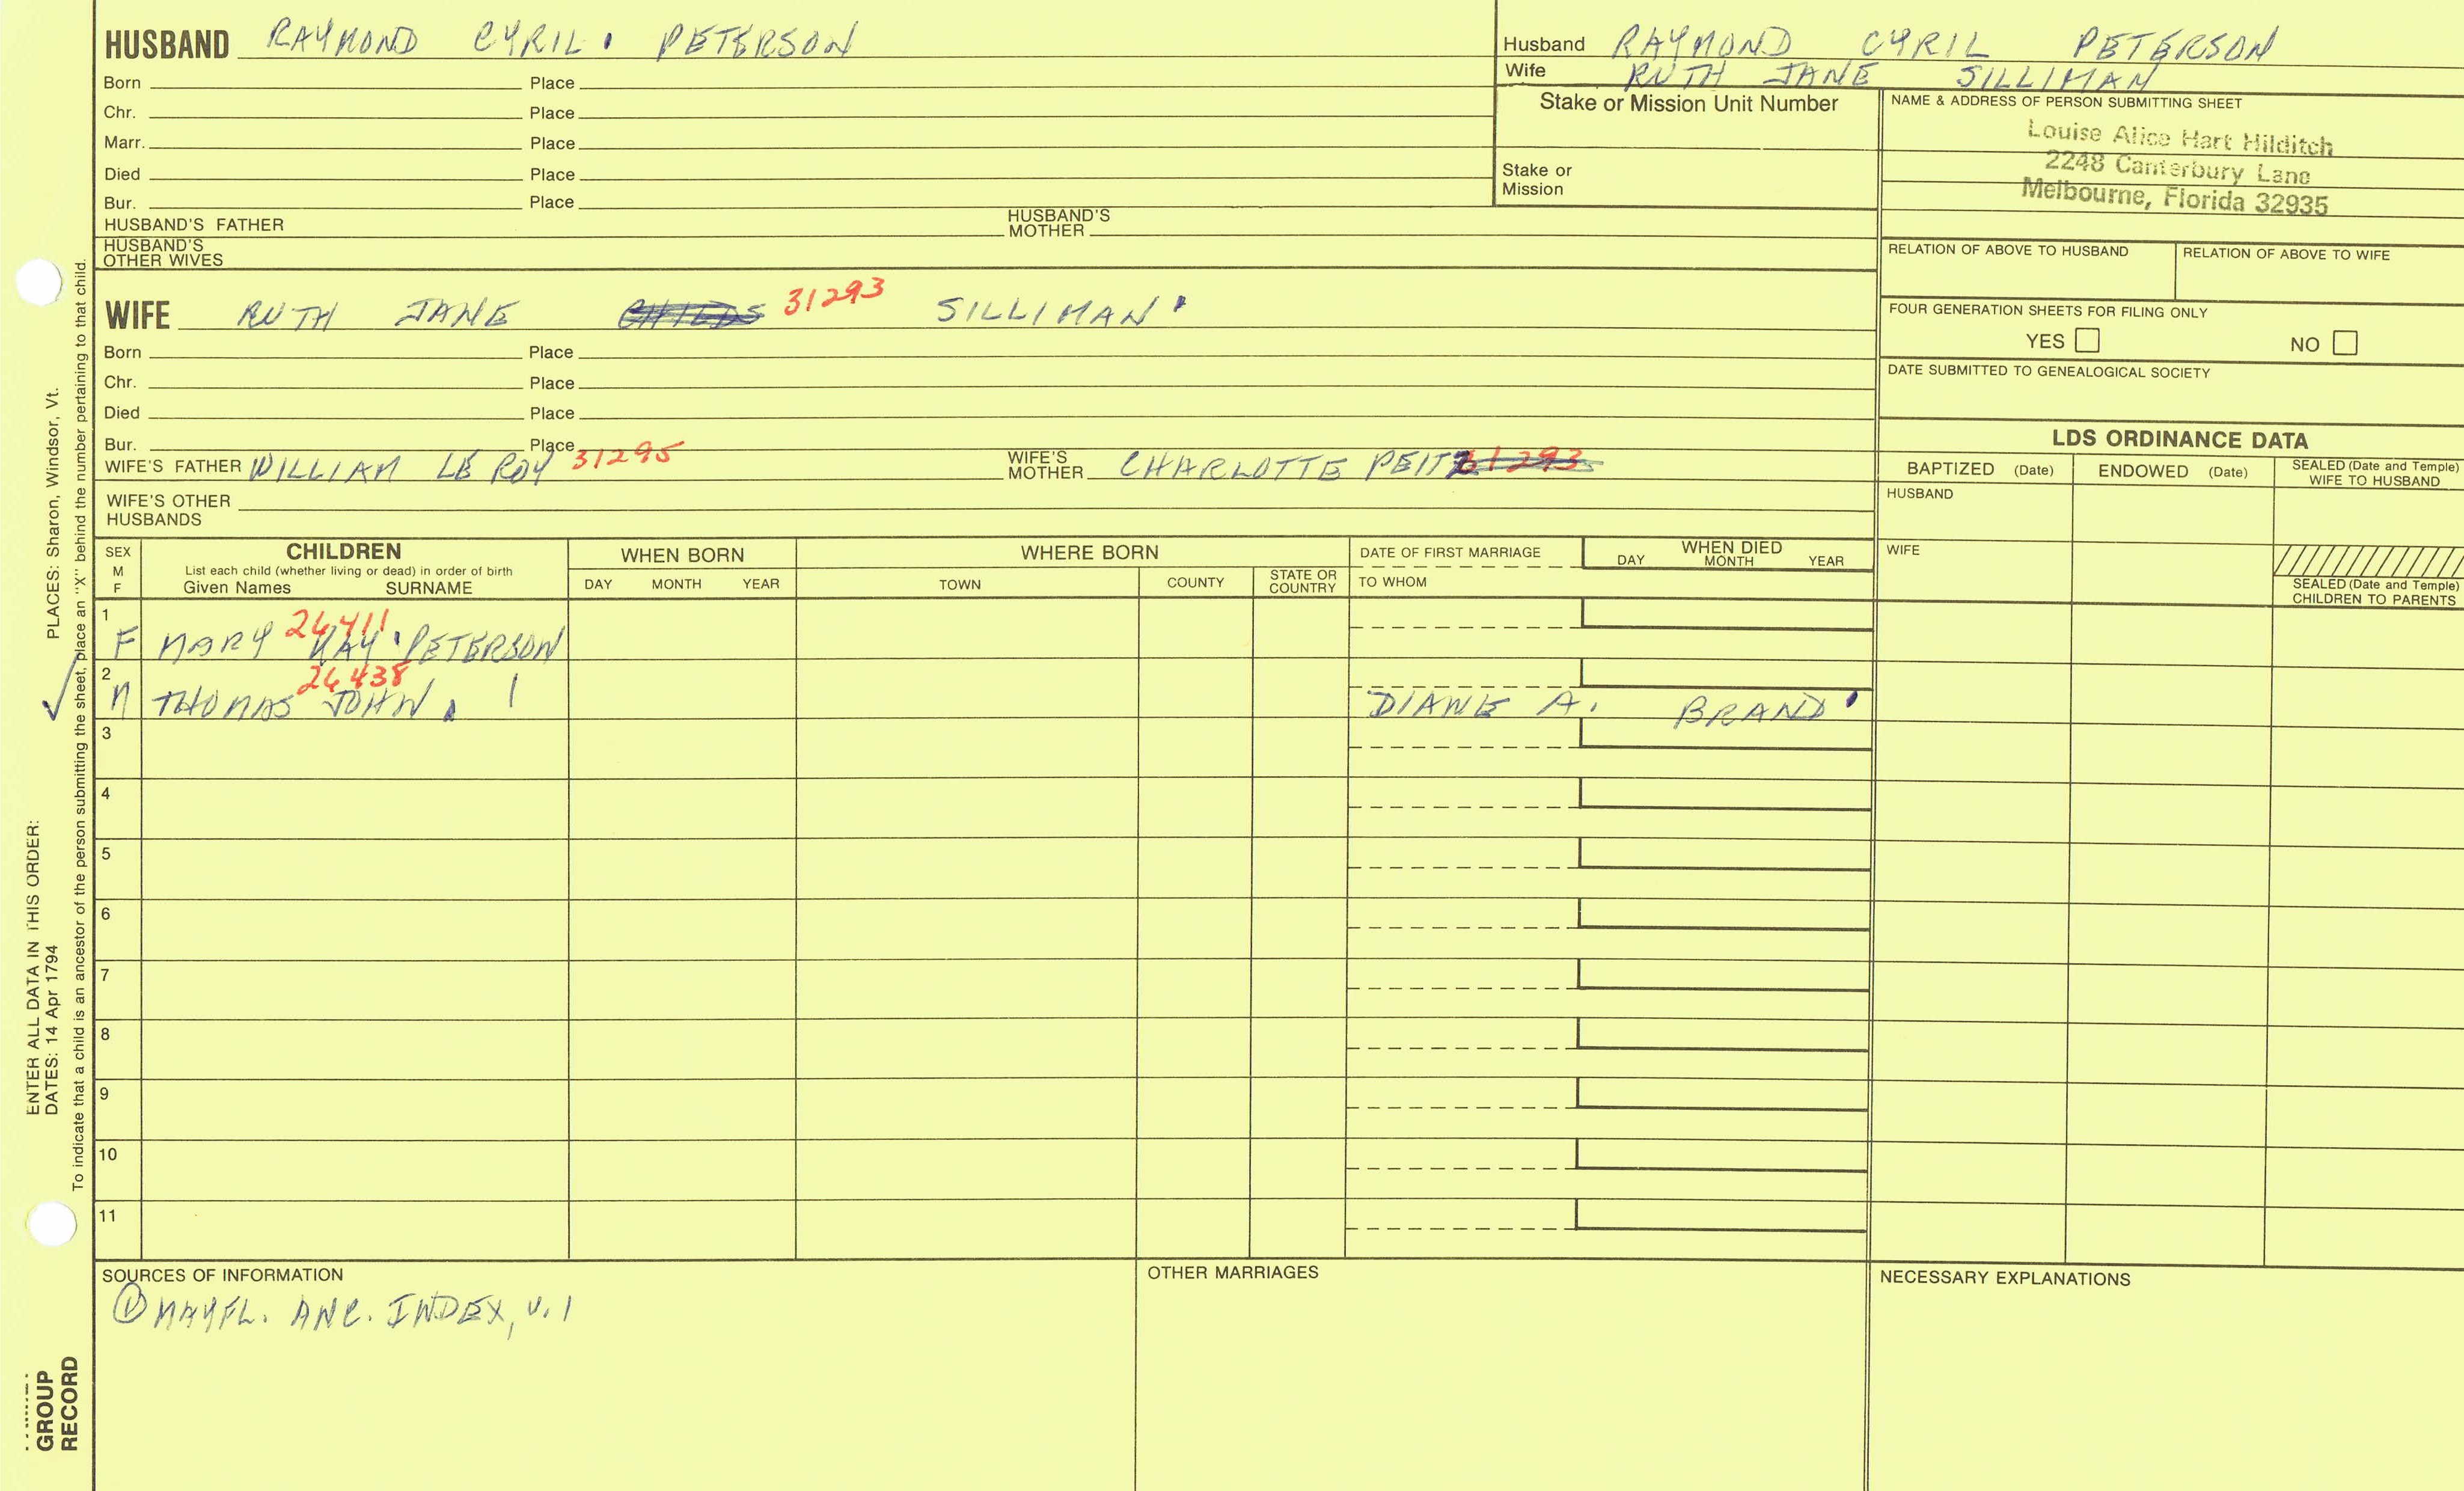 HUSBAND RAYMOND CYRIL. PETERSON
Born Place
Chr. Place
Marr. Place
Died Place
Bur. Place
HUSBAND'S FATHER HUSBAND'S MOTHER
HUSBAND'S OTHER WIVES
Husband RAYMOND CYRIL PETERSON
Wife RUTH JANE SILLIMAN
Stake or Mission Unit Number
Stake or Mission
NAME & ADDRESS OF PERSON SUBMITTING SHEET
Louise Alice Hart Hilditch
2248 Canterbury Lane
Melbourne, Florida 32935
RELATION OF ABOVE TO HUSBAND RELATION OF ABOVE TO WIFE
FOUR GENERATION SHEETS FOR FILING ONLY
YES NO
DATE SUBMITTED TO GENEALOGICAL SOCIETY
WIFE RUTH JANE CHILDS 31293 SILLIMAN
Born Place
Chr. Place
Died Place
Bur. Place
WIFE'S FATHER WILLIAM LE ROY 31295 WIFE'S MOTHER CHARLOTTE 31293
WIFE'S OTHER HUSBANDS
LDS ORDINANCE DATA
BAPTIZED (Date) ENDOWED (Date) SEALED (Date and Temple) WIFE TO HUSBAND
HUSBAND
WIFE
SEALED (Date and Temple) CHILDREN TO PARENTS
SEX M F
CHILDREN
List each child (whether living or dead) in order of birth
Given Names SURNAME
WHEN BORN
DAY MONTH YEAR
WHERE BORN
TOWN COUNTY STATE OR COUNTRY
DATE OF FIRST MARRIAGE
TO WHOM
WHEN DIED
DAY MONTH YEAR
1 F MARY KAY PETERSON 26411
2 M THOMAS JOHN 26438 DIANE A. BRAND
3
4
5
6
7
8
9
10
11
SOURCES OF INFORMATION
① MAYFL. ANC. INDEX, v. 1
OTHER MARRIAGES
NECESSARY EXPLANATIONS
ENTER ALL DATA IN THIS ORDER:
DATES: 14 Apr 1794 PLACES: Sharon, Windsor, Vt.
To indicate that a child is an ancestor of the person submitting the sheet, place an "X" behind the number pertaining to that child.
GROUP
RECORD